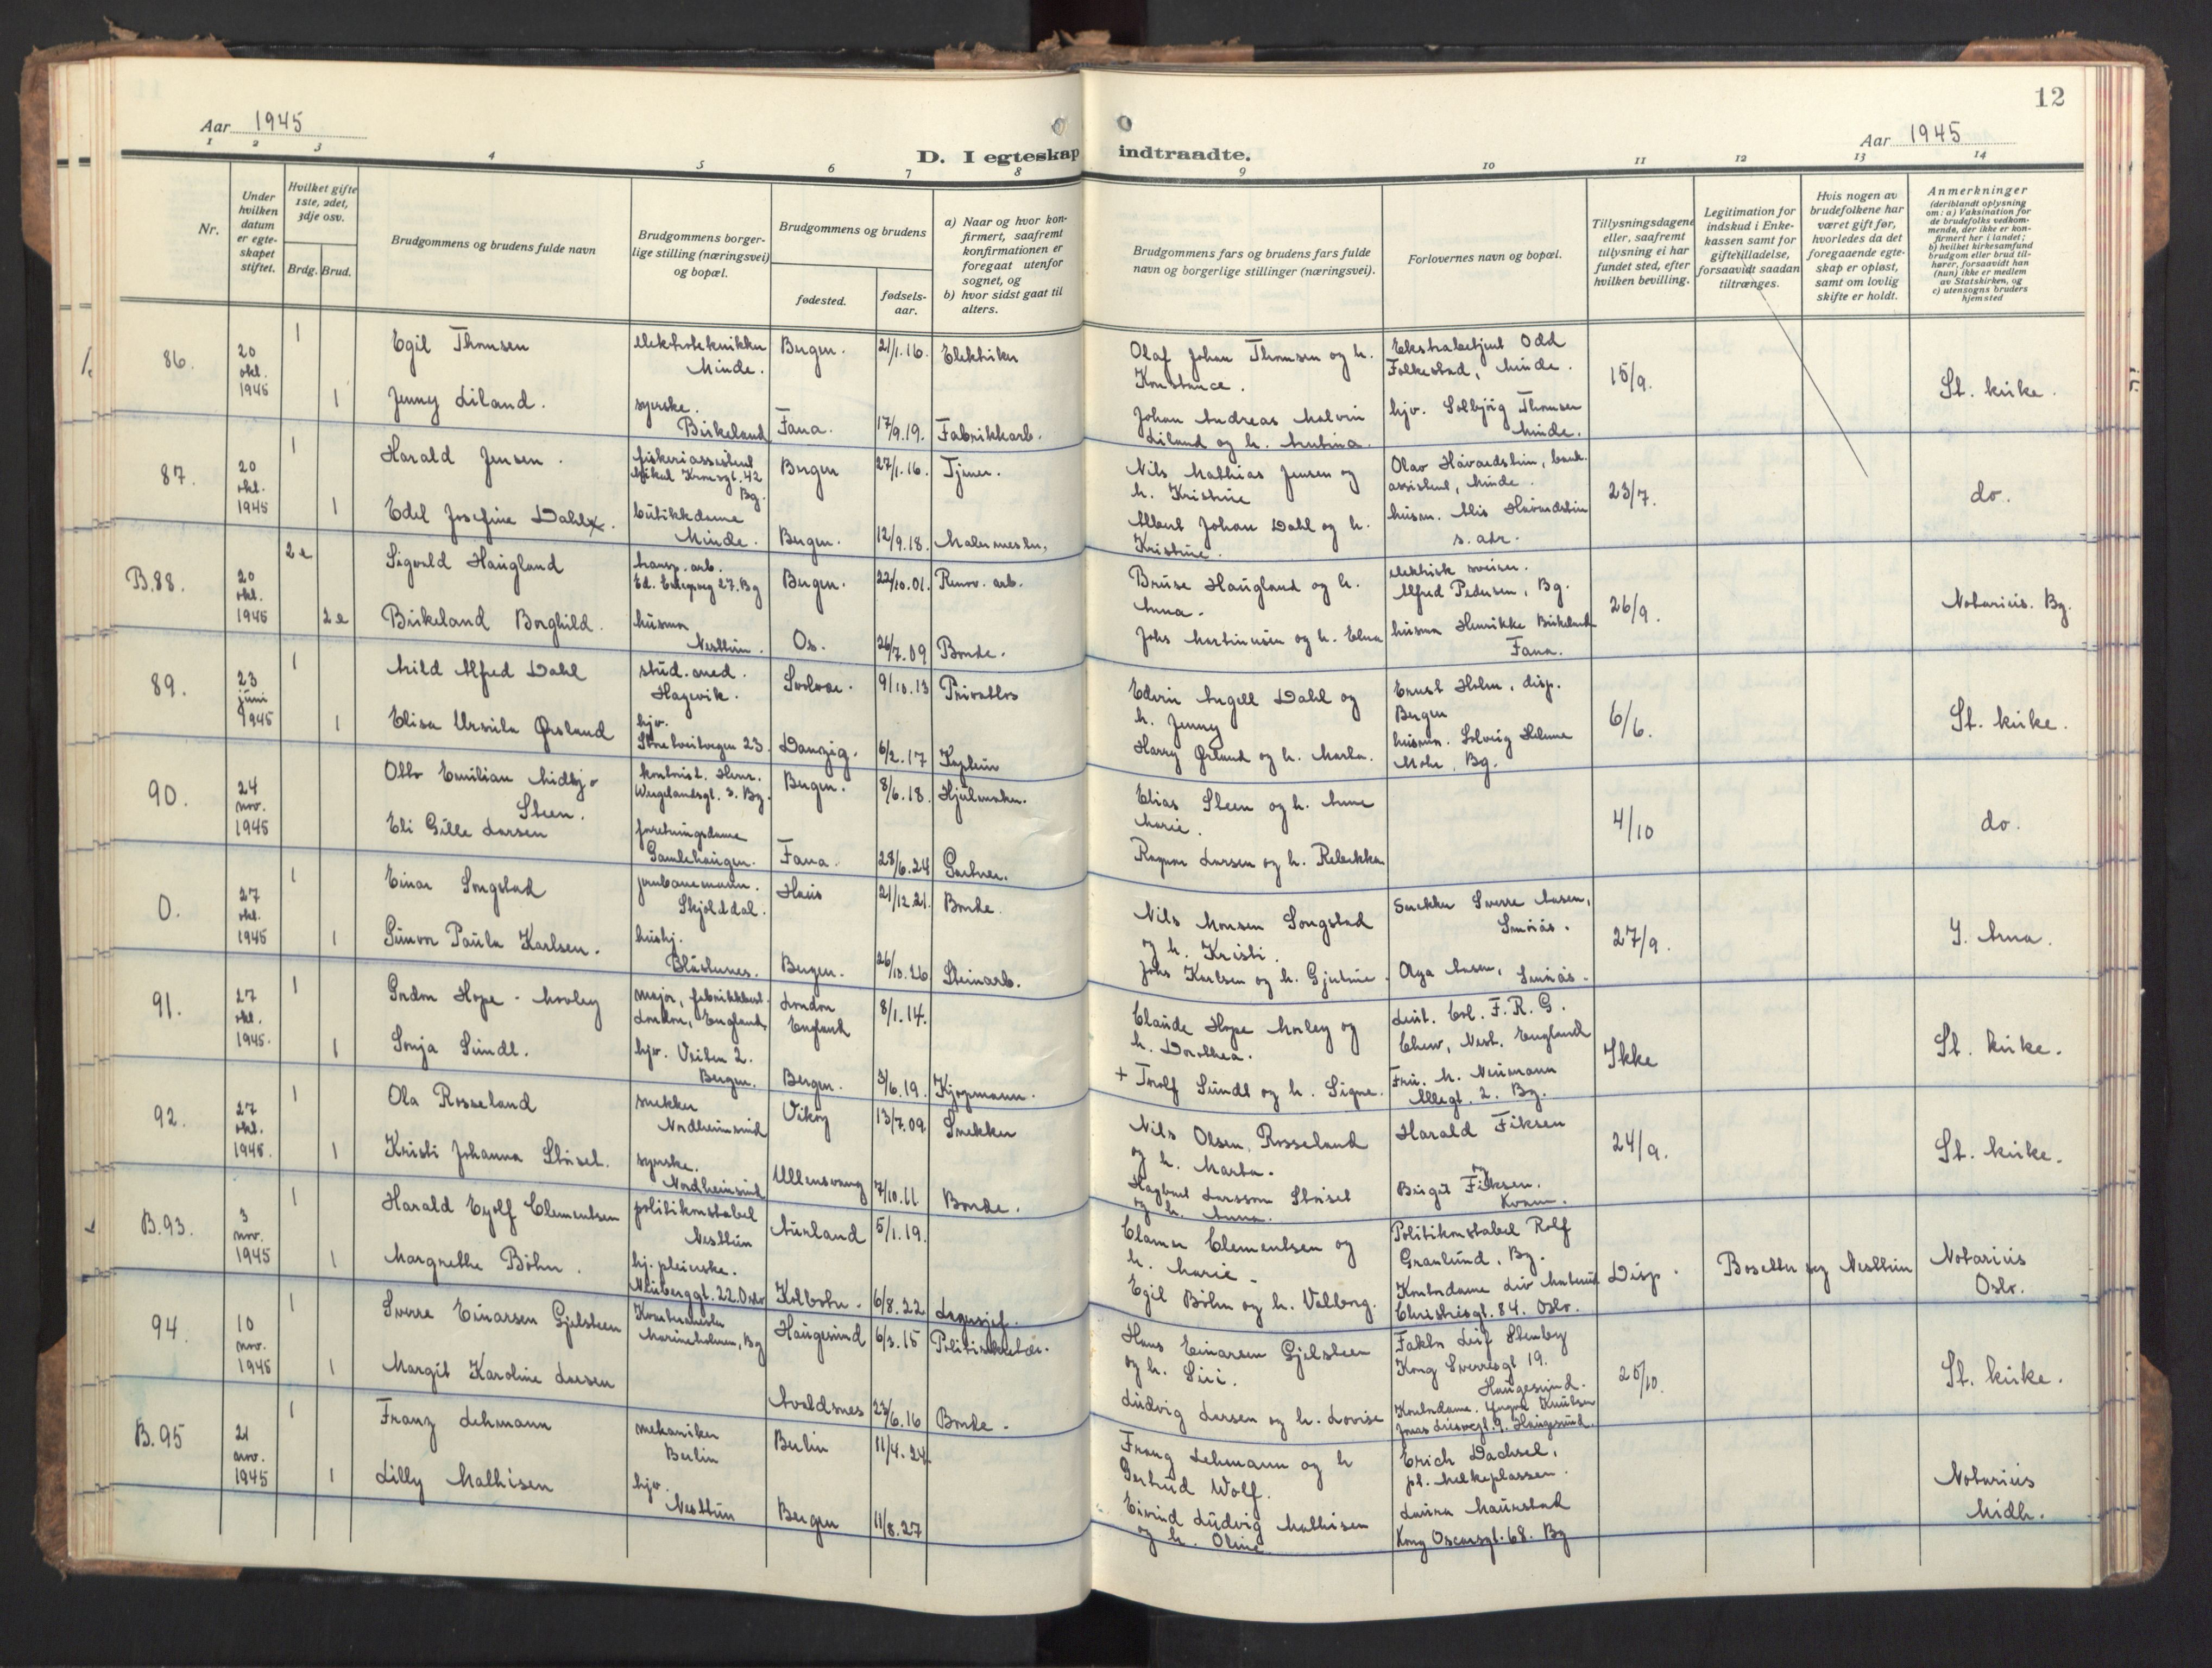 12
Aar 1945
D. I egteskap indtraadte.
Aar 1945
1 2 3 4 5 6 7 8 9 10 11 12 13 14
Nr.
Under hvilken datum er egteskapet stiftet.
Hvilket gifte 1ste, 2det, 3dje osv.
Brdg. Brud.
Brudgommens og brudens fulde navn
Brudgommens borgerlige stilling (næringsvei) og bopæl.
Brudgommens og brudens
fødested.
fødselsaar.
a) Naar og hvor konfirmert, saafremt konfirmationen er foregaat utenfor sognet, og
b) hvor sidst gaat til alters.
Brudgommens fars og brudens fars fulde navn og borgerlige stillinger (næringsvei).
Forlovernes navn og bopæl.
Tillysningsdagene eller, saafremt tillysning ei har fundet sted, efter hvilken bevilling.
Legitimation for indskud i Enkekassen samt for giftetilladelse, forsaavidt saadan tiltrænges.
Hvis nogen av brudefolkene har været gift før, hvorledes da det foregaaende egteskap er opløst, samt om lovlig skifte er holdt.
Anmerkninger (deriblandt oplysning om: a) Vaksination for de brudefolks vedkommende, der ikke er konfirmert her i landet; b) hvilket kirkesamfund brudgom eller brud tilhører, forsaavidt han (hun) ikke er medlem av Statskirken, og c) utensogns bruders hjemsted
86. 20 okt. 1945 1 Egil Thomsen elektrotekniker Minde. Bergen. 21/1.16. Elektriker Olaf Johan Thomsen og h. Konstance. Ekstrabetjent Odd Folkestad, Minde. 15/9. St. kirke.
1 Jenny Liland. syerske. Birkeland Fana. 17/9.19. Fabrikkarb. Johan Andreas Malvin Liland og h. hjv. Solbjörg Thomsen Minde.
87. 20 okt. 1945 1 Harald Jensen. fiskeriassistent Mikal Kronsgt. 42 Bg. Bergen 27/1.16. Tjener. Nils Mathias Jensen og h. Kristine Olav Håvardstun, bankassistent, Minde. 23/7. do.
1 Edel Josefine Dahl. butikkdame Minde. Bergen. 12/9.18. Malermester. Albert Johan Dahl og h. Kristine. husm. Håvardstun s. adr.
B.88. 20 okt. 1945 2e Sigvald Haugland transp. arb. 27. Bg Bergen. 22/10.01. Renov. arb. Haugland og h. Anna. elektrisk sveiser. Alfred Pedersen, Bg. 26/9. Notarius. Bg.
2e Birkeland Borghild. husmor Nesttun. Os. 26/7.09 Bonde. Johs Martinusen og h. Elna husmor Henrikke Birkeland Fana.
89. 23 juni 1945 1 Arild Alfred Dahl stud. med. Hagevik. Svolvær. 9/10.13 Edvin Angell Dahl og h. Jenny Ernst Holm, disp. Bergen 6/6. St. kirke.
1 Elisa Ursula Ørslund hjv. 23. Danzig. 6/2.17 Kaptein Harry Ørlund og h. Marta. husmor. Solveig Helene Mohr, Bg.
90. 24 nov. 1945 Otto Emilian Midtbø Steen. kontorist. Henr. Wergelandsgt. 3. Bg. Bergen. 8/6.18. Hjulmaker. Elias Steen og h. Anne Marie. 4/10 do.
Eli Gille Larsen forretningsdame Gamlehaugen. Fana. 28/6.24 Gartner. Ragnar Larsen og h. Rebekka
0. 27 okt. 1945 1 Einar Songstad jernbanemann. Skjolddal. Haus 21/12.21. Bonde. Nils Monsen Songstad og h. Kristi. Snekker Sverre Aasen, Smörås. 27/9. Y. Arna.
1 Gunvor Paula Karlsen. hushj. Blåstunes. Bergen. 26/10.26 Steinarb. Johs Karlsen og h. Gjertine. Olga Aasen, Smörås.
91. 27 okt. 1945. 1 Gordon Hope-Morley major, London, England London England 8/1.14. Claude Hope Morley og h. Dorothea. Leut. Col. F.R.G. Chew, Nest. England Ikke St. kirke.
1 Sonja Sundt. hjv. Veiten 2. Bergen. Bergen. 3/6.19. Kjøpmann. + Torolf Sundt og h. Signe. Fru. M. Neumann Allegt. 2. Bg.
92. 27 okt. 1945. 1 Ola Rosseland snekker Nordheimsund Vikøy 13/7.09 Snekker Nils Olsen Rosseland og h. Marta. Harald Fiksen 24/9. St. kirke.
1 Kristi Johanna Stöisel. syerske. Nordheimsund Ullensvang 7/10.11 Bonde. Hagbart Larsson Stöisel og h. Anna. og Birgit Fiksen. Kvam.
B.93. 3 nov. 1945 1 Harald Eyolf Clementsen politikonstabel Nesttun Aurland 5/1.19. Clamer Clementsen og h. Marie. Politikonstabel Rolf Granlund, Bg. Disp. Bosetter seg Nesttun Notarius Oslo.
1 Margrethe Böhn. hj. pleierske. Neuberggt. 22. Oslo Kolbotn. 6/8.22 Lagersjef. Egil Böhn og h. Valborg. Kontordame Liv Christiesgt. 84. Oslo.
94. 10 nov. 1945 1 Sverre Einarsen Gjelsteen Marineholmen, Bg Haugesund 6/3.15 Hans Einarsen Gjelsteen og h. Siri. Faktor Leif Stenby Kong Sverresgt 19. Haugesund. 25/10. St. kirke.
1 Margit Karoline Larsen Avaldsnes 23/6.16 Bonde. Ludvig Larsen og h. Lovise Kontordame. Yngva Knutsen Jonas Liesvegt. 9. Haugesund.
B.95 21 nov. 1945 1 Franz Lehmann mekaniker Berlin Berlin 11/4.24. Franz Lehmann og h Gertrud Wolf. Erich Dachsel, pt. Melkeplassen. Notarius Midh.
1 Lilly Mathisen hjv. Nesttun Bergen 11/8.27 Eivind Ludvig Mathisen og h. Oline. Laura Maurstad Kong Oscarsgt. 68. Bg